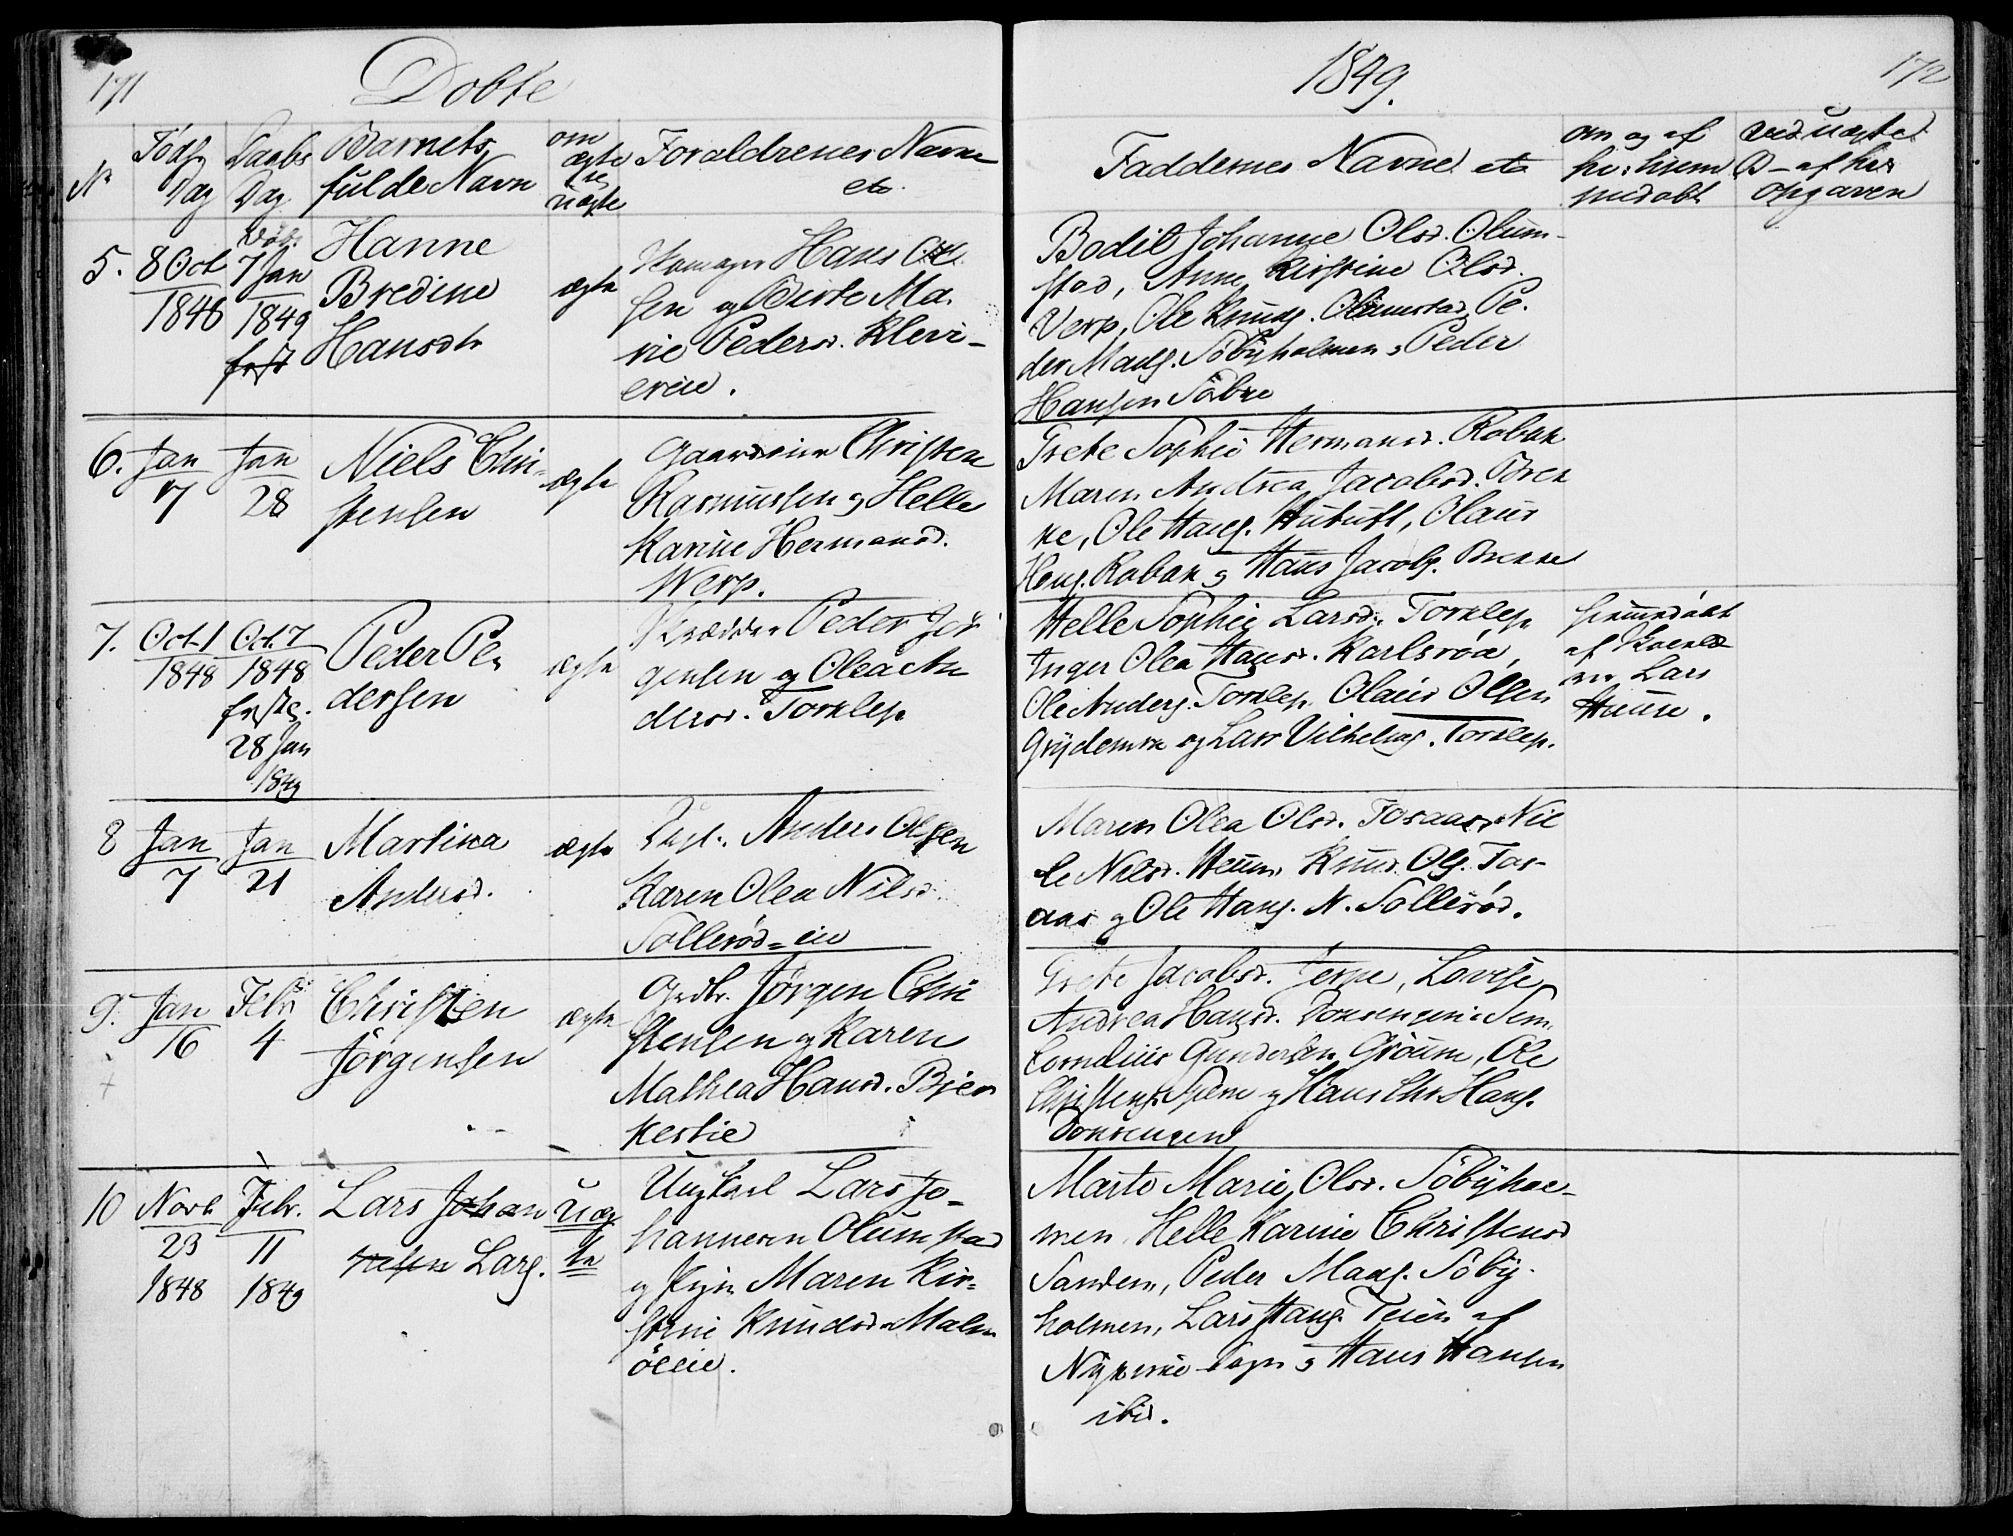 171
Döbte
1849.
172
No
Föds
Dag
Daabs
Dag
Barnets
fulde Navn
om
ægte
el
uægte
Forældrenes Navne
etc.
Faddernes Navne etc
om og af
hv: hjem
medøbt
ved uægte
B- af hvs
opgaven
5. 8 Oct
1848
Döbt
7 Jan
1849
Hanne
Bredine
Hansdr
ægte
Hans Ol
sen og Berte Ma
rie Pedersd. Klevi-
erne.
Bodil Johanne Olsd. Olum-
stad, Anne Kirstine Olsd.
Verp, Ole Knuds. Olumstad, Pe-
der Mads. Söbyholmen, Peder
Hansen Söbye
6. Jan
17
Jan
28
Niels Chri-
stensen
ægte
Gaardeier Christen
Rasmussen og Helle
Karine Hermansd.
Werp.
Grete Sophie Hermansd. Robak
Maren Andrea Jacobsd. Brek
ke, Ole Hans. Olaus
Robak og Hans Jacobs. Brekke
7. Oct. 1
1848
Oct. 7
1848
frstc.
28 Jan
1849
Peder Pe
dersen
ægte
Peder Jör
gensen og Olea An
dersd. Torklep
Helle Sophie Larsd. Torklep
Inger Olea Hansd. Karlsröd,
Ole Anders. Torklep, Olaus Olsen
og Lars Vilhelms. Torklep.
hjemmedöbt
af
Lars
8 Jan
7
Jan
21
Martina
Andersd.
ægte
Anders Olsen
Karen Olea Nilsd.
Sölleröd=eie
Maren Olea Olsd. Tasaas, Nic
le Nilsd. Heum, Knud Ols. Tas-
aas og Ole Hans. N. Sölleröd.
9. Jan
16
Febr
4
Christen
Jörgensen
ægte
Grdbr. Jörgen Chri
stensen og Karen
Mathea Hansd. Bjer
keslie
Grete Jacobsd. Jerpe, Lovise
Andrea Hansd. Sem
Cornelius Gundersen Ole
Christens. og Hans Chr. Hans.
10 Novb
23
1848
Febr.
11
1849
Lars Johan
nesen Lars.
uæg
te
Ungkarl Lars Jo-
hannesen Olumstad
og Pige Maren Kir-
stine Knudsd. Malm
ölleie.
Marte Marie Olsd. Söbyhol-
men, Helle Karine Christensd
Sanden, Peder Mads. Söby-
holmen, Lars Hans. Teien af
Nykirke Sogn og Hans Hansen
ibid.